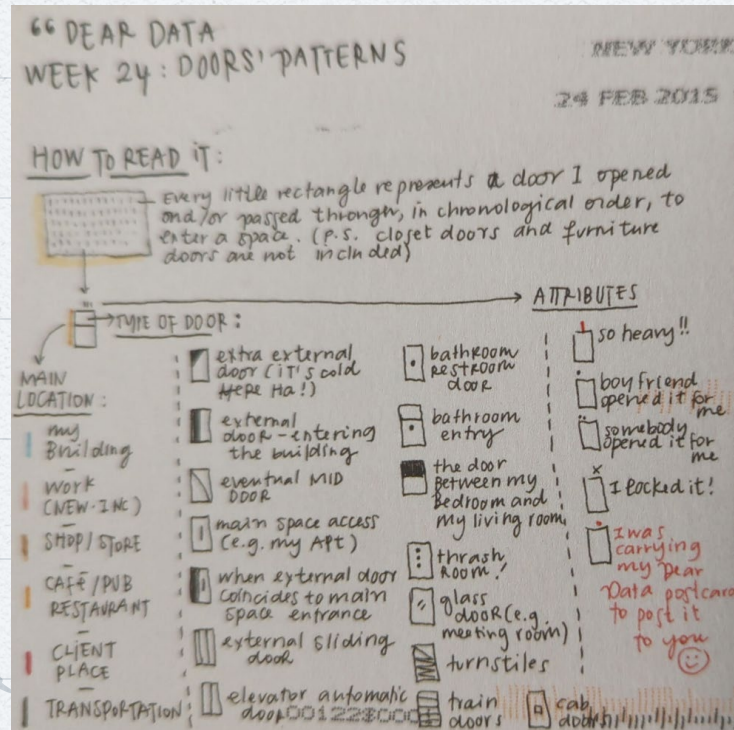 “ DEAR DATA
WEEK 24 : DOORS' PATTERNS
NEW YORK
24 FEB 2015
HOW TO READ IT:
Every little rectangle represents a door I opened
and/or passed through, in chronological order, to
enter a space. (P.S. closet doors and furniture
doors are not included)
ATTRIBUTES
TYPE OF DOOR :
MAIN
LOCATION :
my
Building
WORK
(NEW INC)
SHOP/STORE
CAFé/PUB
RESTAURANT
CLIENT
PLACE
TRANSPORTATION
extra external
door (iT'S cold
HERE HA!)
external
dooR - entering
the building
eventual MID
DOOR
main space access
(e.g. my APt)
when external door
coincides to main
space entrance
external sliding
door
elevator automatic
door
bathroom
restroom
door
bathroom
entry
the door
Between my
Bedroom and
my living room
thrash
Room!
glass
dooR (e.g.
meeting room)
turnstiles
train
doors
cab
doors
so heavy!!
boyfriend
opened it for
me
somebody
opened it for
me
I locked it!
I was
carrying
my Dear
Data postcard
to post it
to you